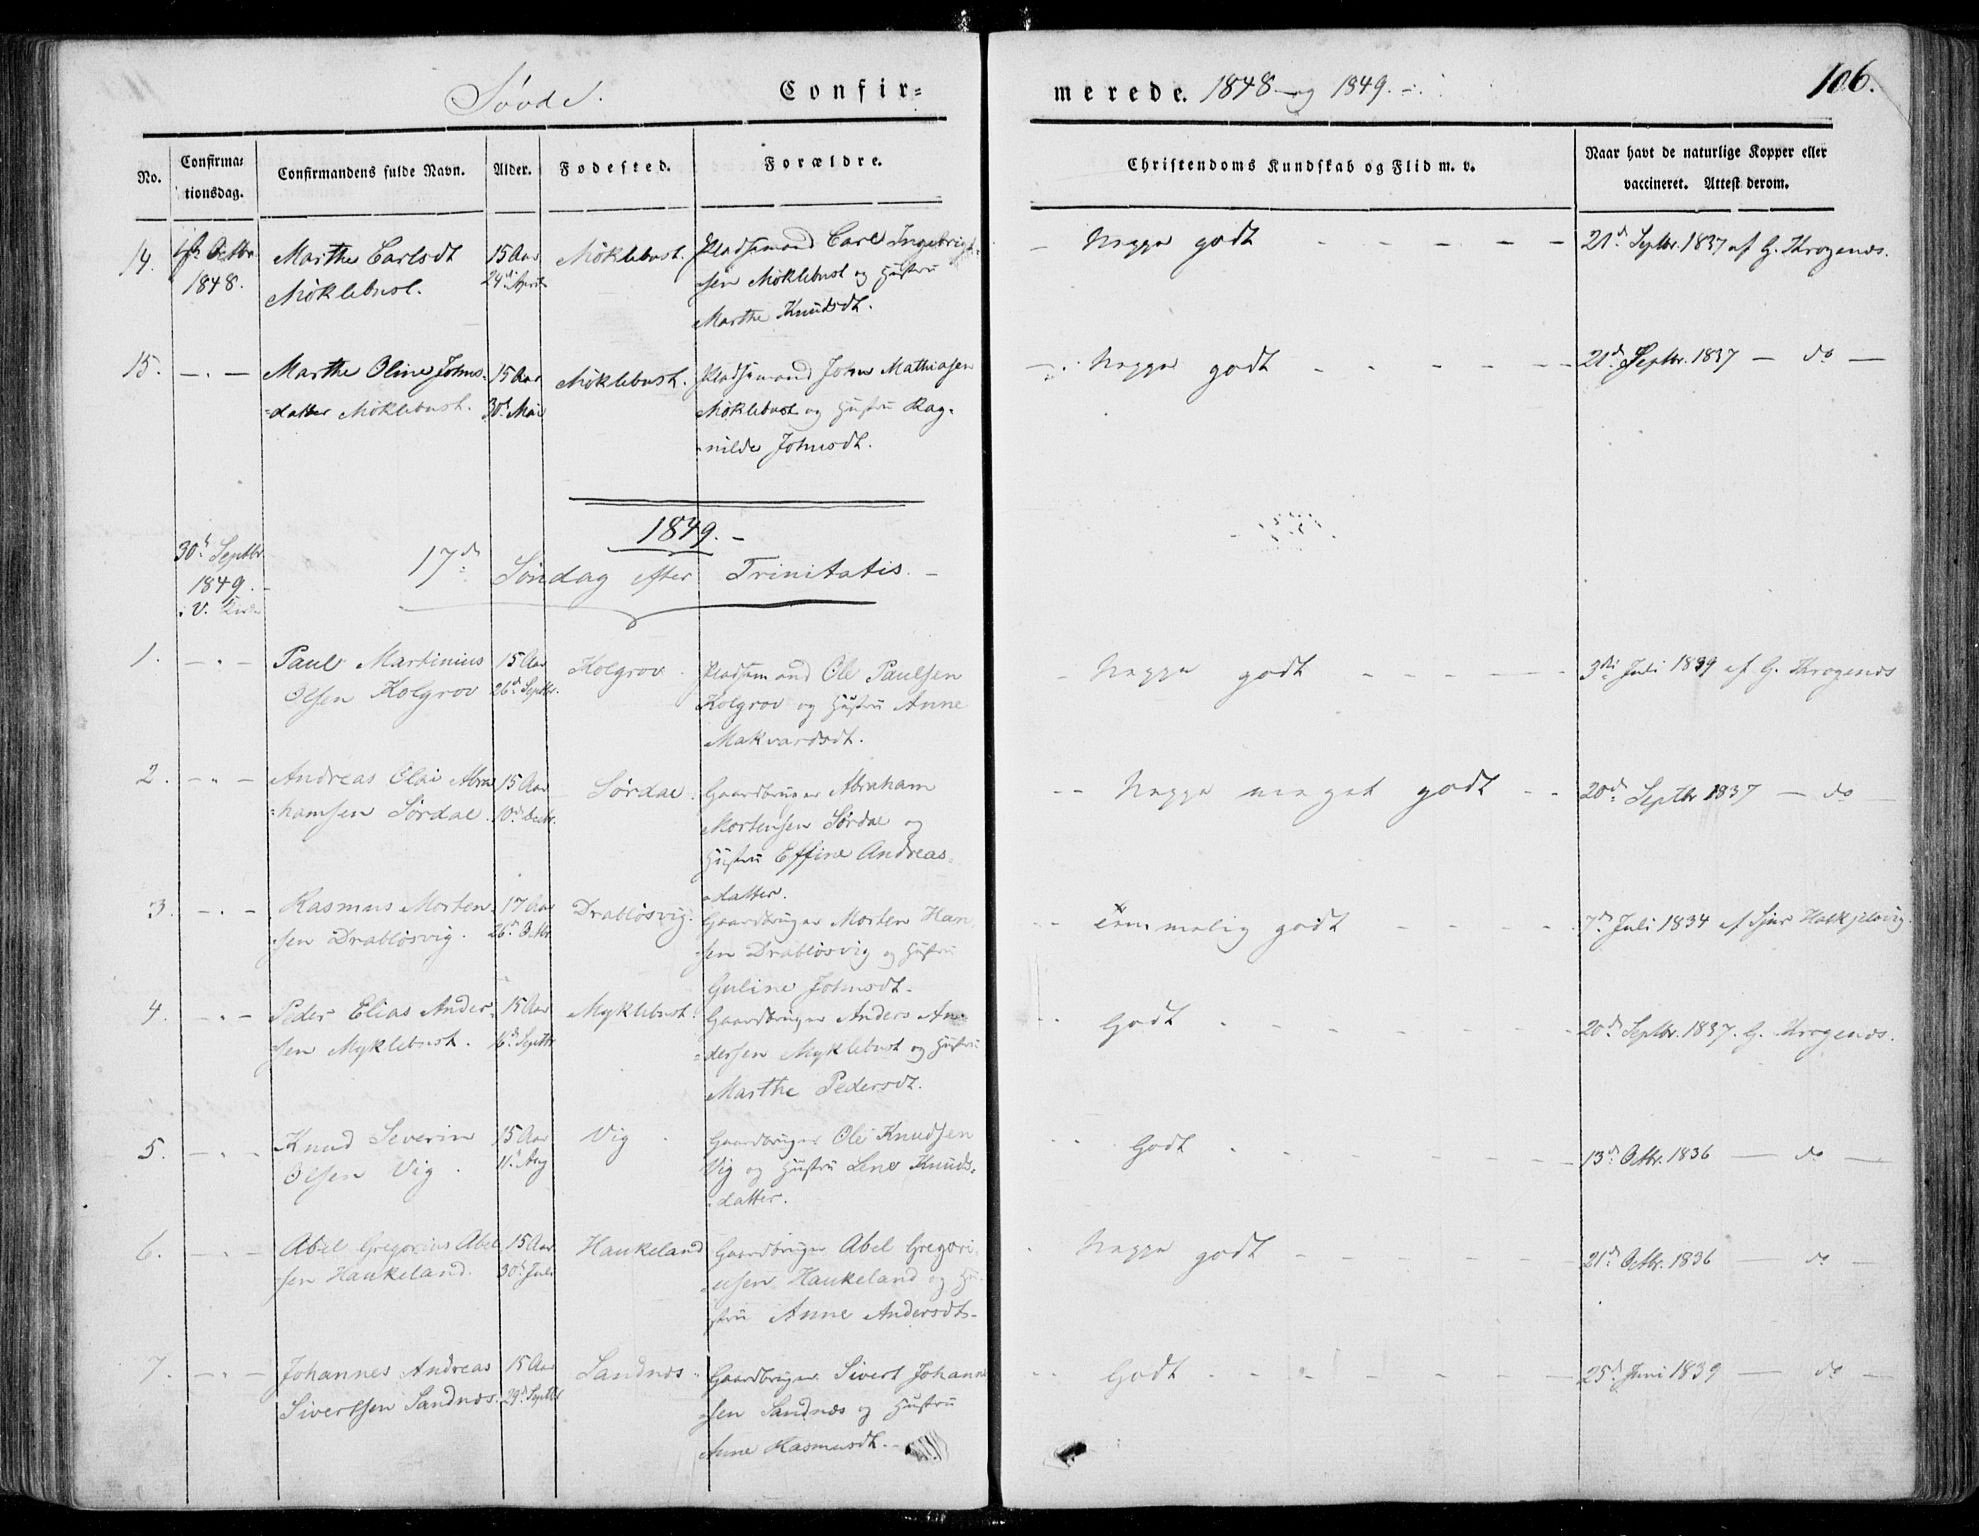 Søvde.
Confir=
merede. 1848 og 1849.
106.
No.
Confirma=
tionsdag.
Confirmandens fulde Navn.
Alder.
Fødested.
Forældre.
Christendoms Kundskab og Flid m. v.
Naar havt de naturlige Kopper eller
vaccineret. Attest derom.
14.
1st Octbr
1848.
Marthe Carlsdt
Møklebust.
15 Aar
24d April
Møklebust.
Pladsmand Carl Ingebrigt-
sen Møklebust og Hustru
Marthe Knudsdt.
godt
21d Septbr. 1837 af G. Krogenæs.
15.
Marthe Oline Johns-
datter Møklebust.
15 Aar
30d Mai
Møklebust.
Pladsmand John Mathiasen
Møklebust og Hustru Rag-
nilde Johnsdt.
godt
21d Septbr. 1837 — do —
1849.
30d Septbr
1849.
17de Søndag efter Trinitatis.
1.
Paul Martinius
Olsen Kolgrov
15 Aar
26d Septbr.
Kolgrov
Pladsmand Ole Paulsen
Kolgrov og Hustru Anne
Makvardsdt.
godt
3di Juli 1839 af G. Krogenæs
2.
Andreas Olai Abra
hamsen Sørdal.
15 Aar
10d Decbr.
Sørdal.
Gaardbruger Abraham
Mortensen Sørdal og
Hustru Effine Andreas-
datter.
meget godt
20de Septbr 1837 — do —
3.
Rasmus Morten-
sen Drabløsvig.
17 Aar
26d Octbr.
Drabløsvig.
Gaardbruger Morten Han
sen Drabløsvig og Hustru
Guline Johnsdt.
temmelig godt
7d Juli 1834 af Sjur Hatkjelvig.
4.
Peder Elias Ander-
sen Myklebust.
15 Aar
16d Septbr
Myklebust.
Gaardbruger Anders An-
dersen Myklebust og Hustru
Marthe Pedersdt.
Godt
20de Septbr. 1837. G. Krogenæs.
5.
Knud Severin
Olsen Vig
15 Aar
11d Aug
Vig
Gaardbruger Ole Knudsen
Vig og Hustru Lene Knuds-
datter.
Godt
13d Octbr. 1836 — do —
6.
Abel Gregorius Abel
sen Haukeland.
15 Aar
30d Juli
Haukeland
Gaardbruger Abel Gregori
usen Haukeland og Hu-
stru Anne Andersdt.
godt
21d Octbr. 1836 — do —
7.
Johannes Andreas
Sivertsen Sandnæs.
15 Aar
29d Septbr
Sandnæs
Gaardbruger Sivert Johanne
sen Sandnæs og Hustru
Anne Rasmusdt.
Godt
25d Juni 1839 — do —